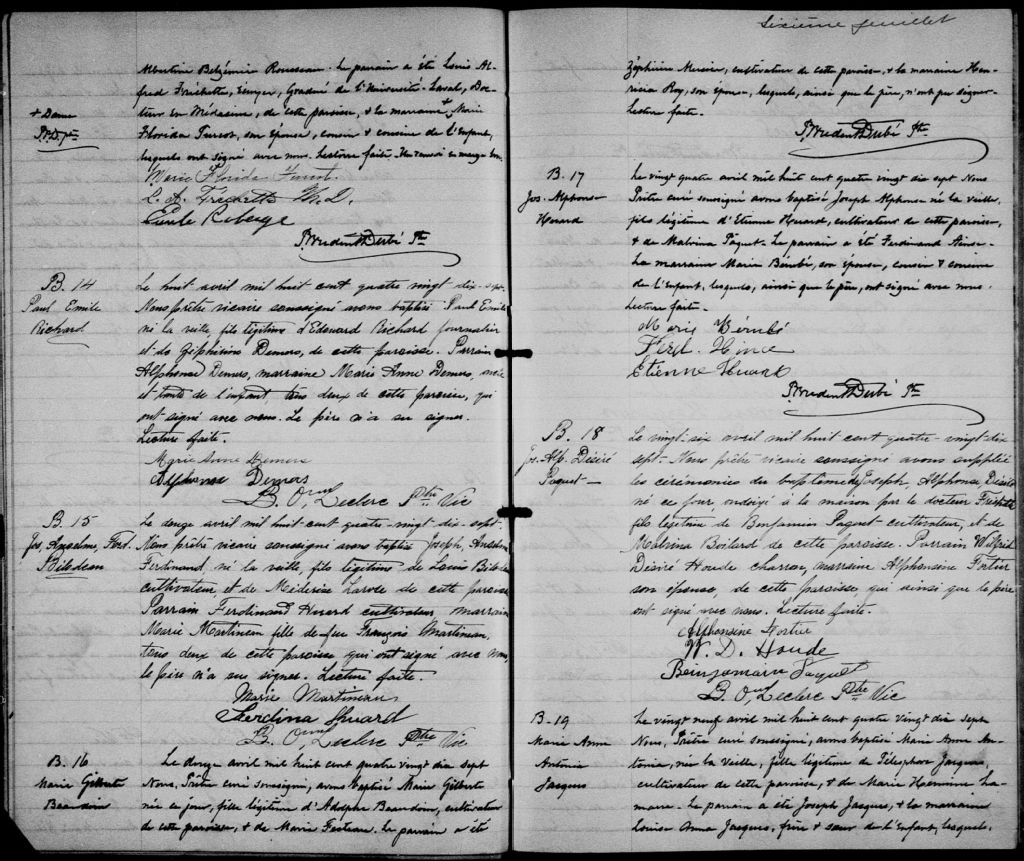 Albertine Belzémire Rousseau. Le parrain a été Louis Al-
fred Fréchette, Ecuyer, Gradué de l'Université-Laval, Doc-
+ Dame
teur en Médecine, de cette paroisse, & la marraine + Marie
Florida Turcot, son épouse, cousin & cousine de l'Enfant,
lesquels ont signé avec nous. Lecture faite. Un renvoi en marge bon.
Marie Florida Turcot.
L. A. Fréchette M.D.
Emile Roberge
Prudent Dubé Ptre
B. 14
Paul Emile
Richard
Le huit avril mil huit cent quatre vingt dix-sept
Nous prêtre vicaire soussigné avons baptisé Paul Emile
né la veille, fils légitime d'Edouard Richard journalier
et de Zéphirine Demers, de cette paroisse. Parrain
Alphonse Demers, marraine Marie Anne Demers, oncle
et tante de l'enfant, tous deux de cette paroisse, qui
ont signé avec nous. Le père n'a su signer.
Lecture faite.
Marie Anne Demers
Alphonse Demers
B. O. Leclerc Ptre Vic
B. 15
Jos. Anselme, Ferd.
Bilodeau
Le douze avril mil huit cent quatre-vingt dix-sept.
Nous prêtre vicaire soussigné avons baptisé Joseph, Anselme
Ferdinand, né la veille, fils légitime de Louis Bilodeau
cultivateur, et de Médérise Larose de cette paroisse
Parrain Ferdinand Huard cultivateur marraine
Marie Martineau fille de feu François Martineau,
tous deux de cette paroisse qui ont signé avec nous,
le père n'a su signer. Lecture faite.
Marie Martineau
Ferdina Huard
B. O. Leclerc Ptre Vic
B. 16
Marie Gilberte
Beaudoin
Le douze avril mil huit cent quatre vingt dix sept
Nous, Prêtre curé soussigné, avons baptisé Marie Gilberte
née ce jour, fille légitime d'Adolphe Beaudoin, cultivateur
de cette paroisse, & de Marie Fecteau. Le parrain a été
Sixième feuillet
Zéphirin Mercier, cultivateur de cette paroisse, & la marraine Hen-
Roy, son épouse, lesquels, ainsi que le père, n'ont pu signer.
Lecture faite.
Prudent Dubé Ptre
B. 17
Jos. Alphonse
Huard
Le vingt quatre avril mil huit cent quatre vingt dix sept Nous
Prêtre curé soussigné avons baptisé Joseph Alphonse né la veille,
fils légitime d'Etienne Huard, cultivateur de cette paroisse,
& de Malvina Paquet. Le parrain a été Ferdinand
La marraine Marie Bérubé, son épouse, cousin & cousine
de l'Enfant, lesquels, ainsi que le père, ont signé avec nous.
Lecture faite.
Marie Bérubé
Ferd. Hince
Etienne Huard
Prudent Dubé Ptre
B. 18
Jos. Alp. Désiré
Paquet
Le vingt-six avril mil huit cent quatre-vingt-dix
sept. Nous prêtre vicaire soussigné avons suppléé
les cérémonies du baptême de Joseph, Alphonse Désiré
né ce jour, ondoyé à la maison par le docteur Fréchette
fils légitime de Benjamin Paquet cultivateur, et de
Malvina Boilard de cette paroisse. Parrain Wilfrid
Désiré Houde charron, marraine Alphonsine Fortier
son épouse, de cette paroisse, qui ainsi que le père
ont signé avec nous. Lecture faite.
Alphonsine Fortier
W. D. Houde
Beinjomain Paquet
B. O. Leclerc Ptre Vic
B-19
Marie Anne
Antônia
Jacques
Le vingt neuf avril mil huit cent quatre vingt dix sept
Nous, Prêtre curé soussigné, avons baptisé Marie Anne An-
tonia, née la Veille, fille légitime de Télesphore Jacques,
cultivateur de cette paroisse, & de Marie Hermine La-
marre. Le parrain a été Joseph Jacques, & la marraine
Louise Anna Jacques, frère & sœur de l'Enfant, lesquels,